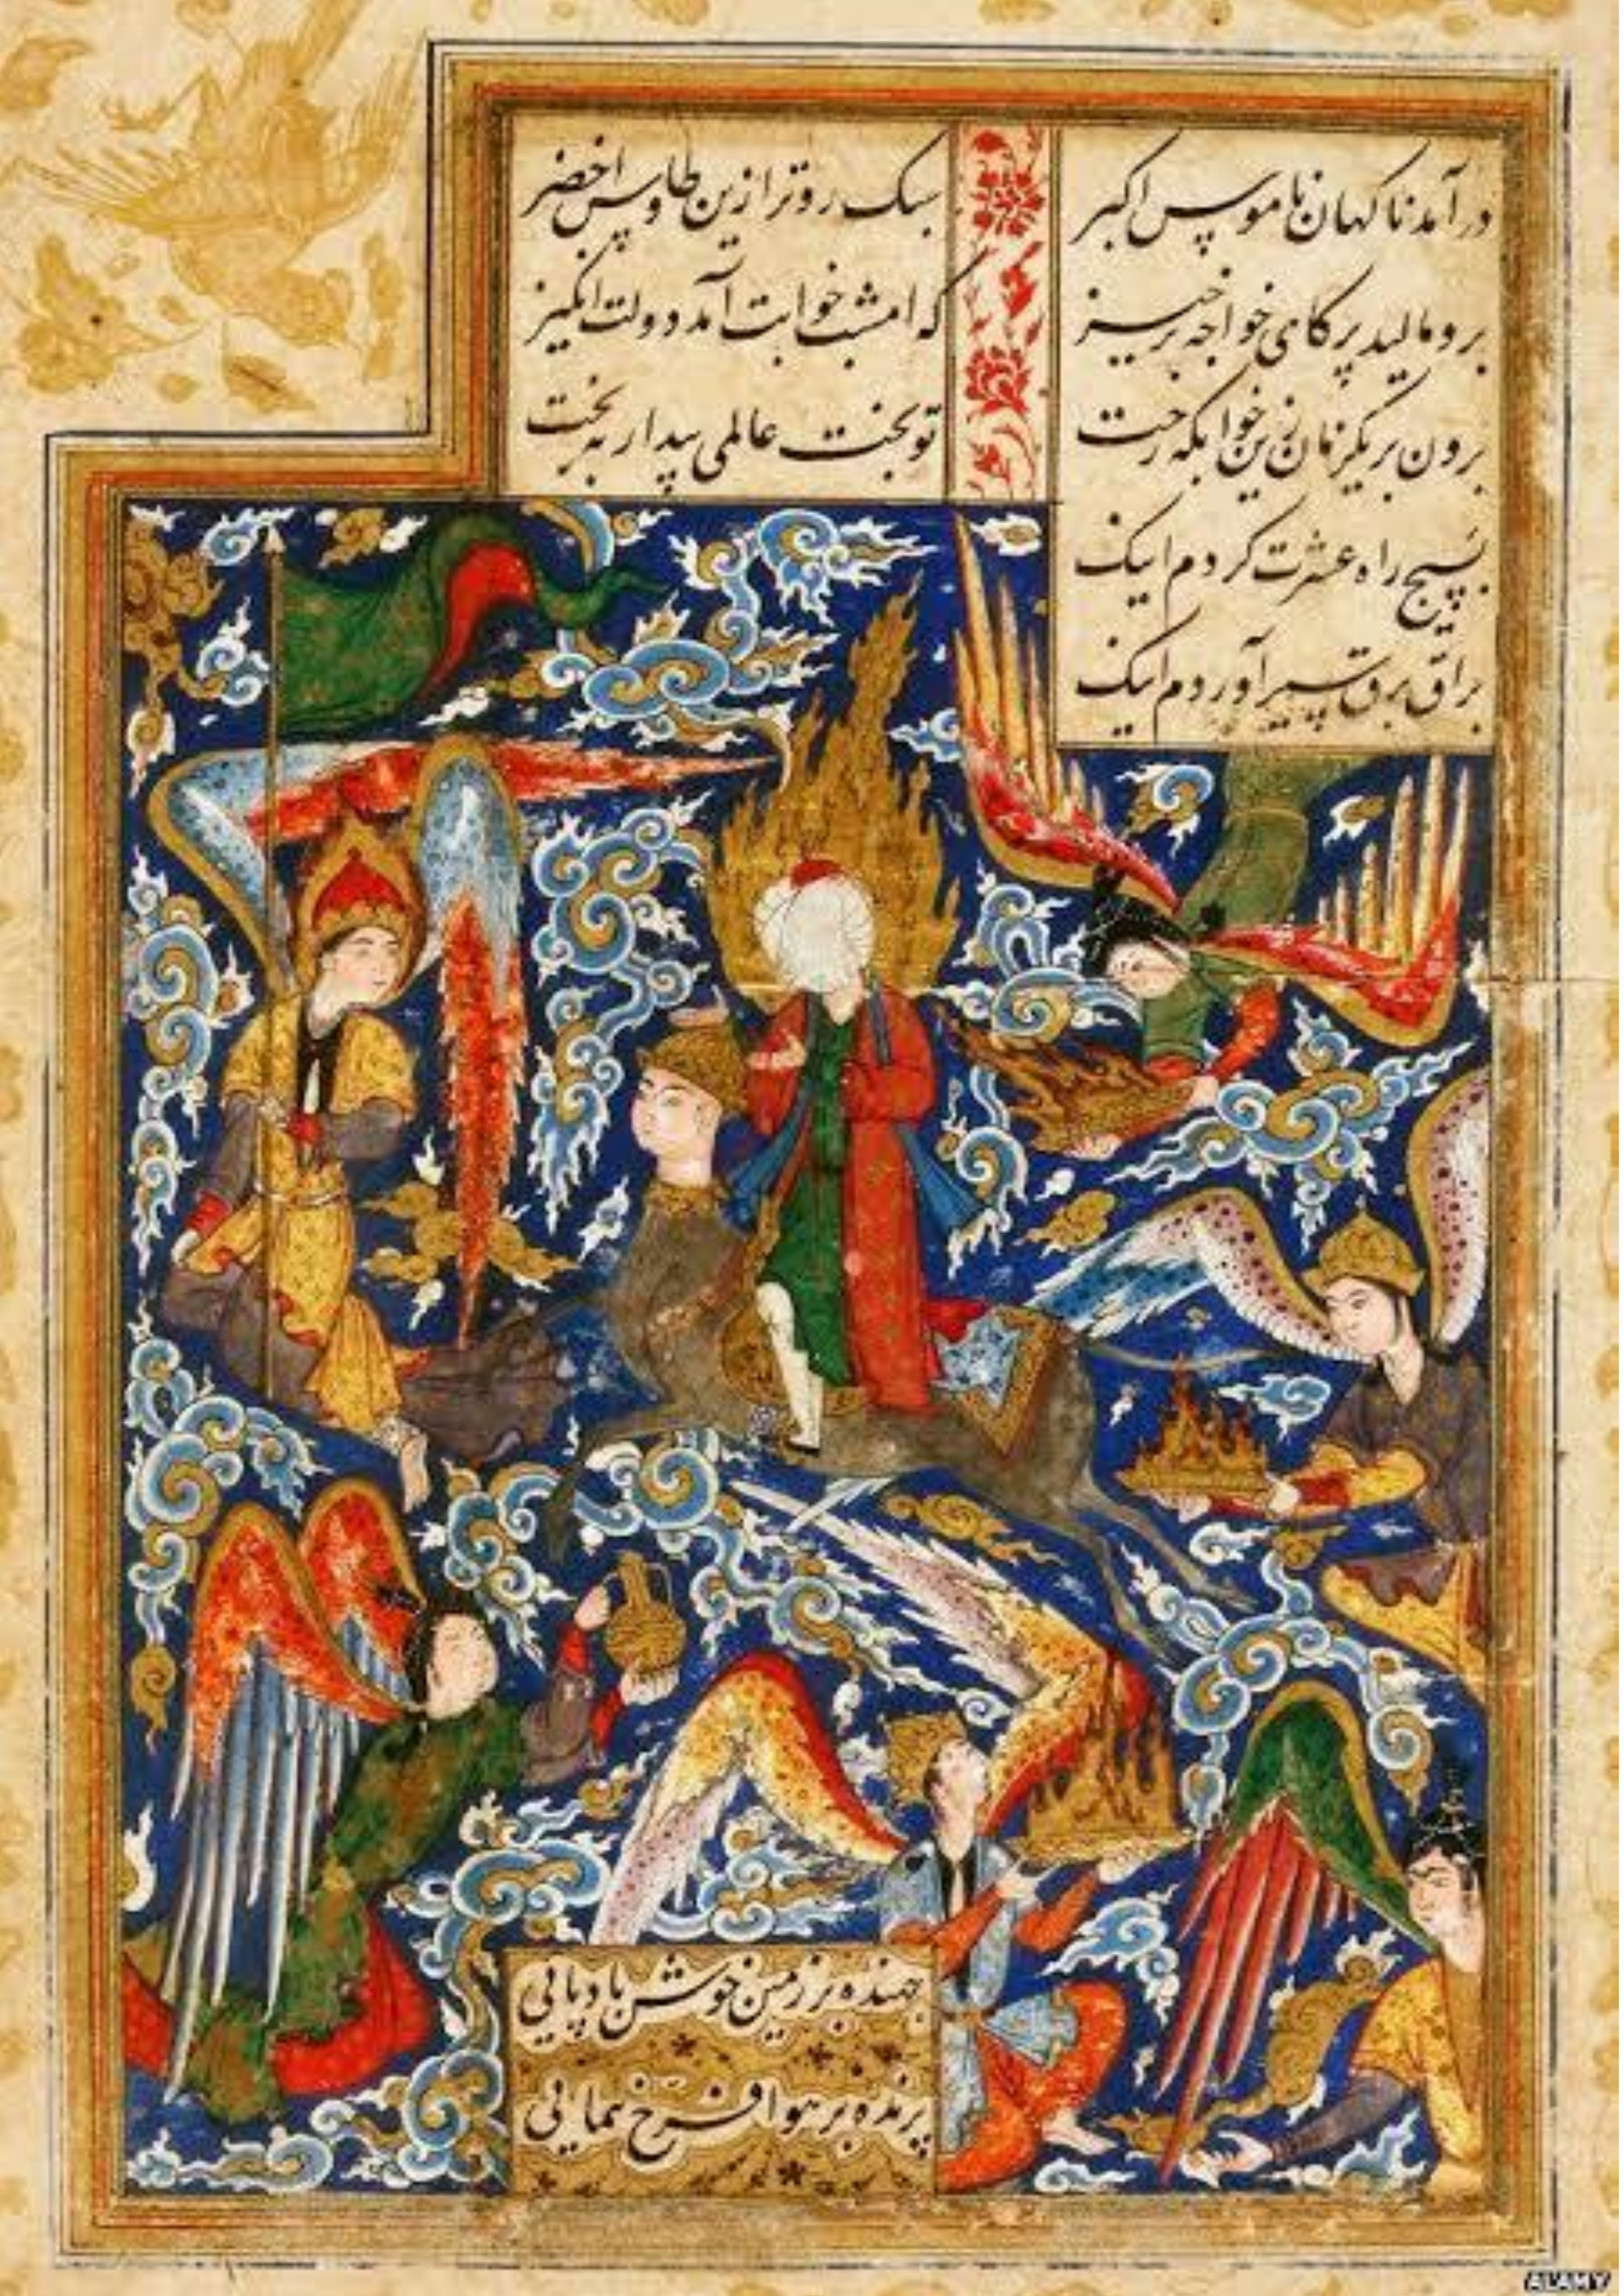 در آمد ناکهان ناموس اکبر سبک روتر ازین طاوس اخضر
برو مالید پر کای خواجه برخیز که امشب خوابت آمد دولت انکیز
برون بر یکزمان زین خوابکه رخت تو بخت عالمی بیدار به بخت
بسیج راه عشرت کردم اینک
براق برق سیر آوردم اینک
جهنده بر زمین خوش بادپایی
پرنده بر هوا فرخ نمایی
ALAMY